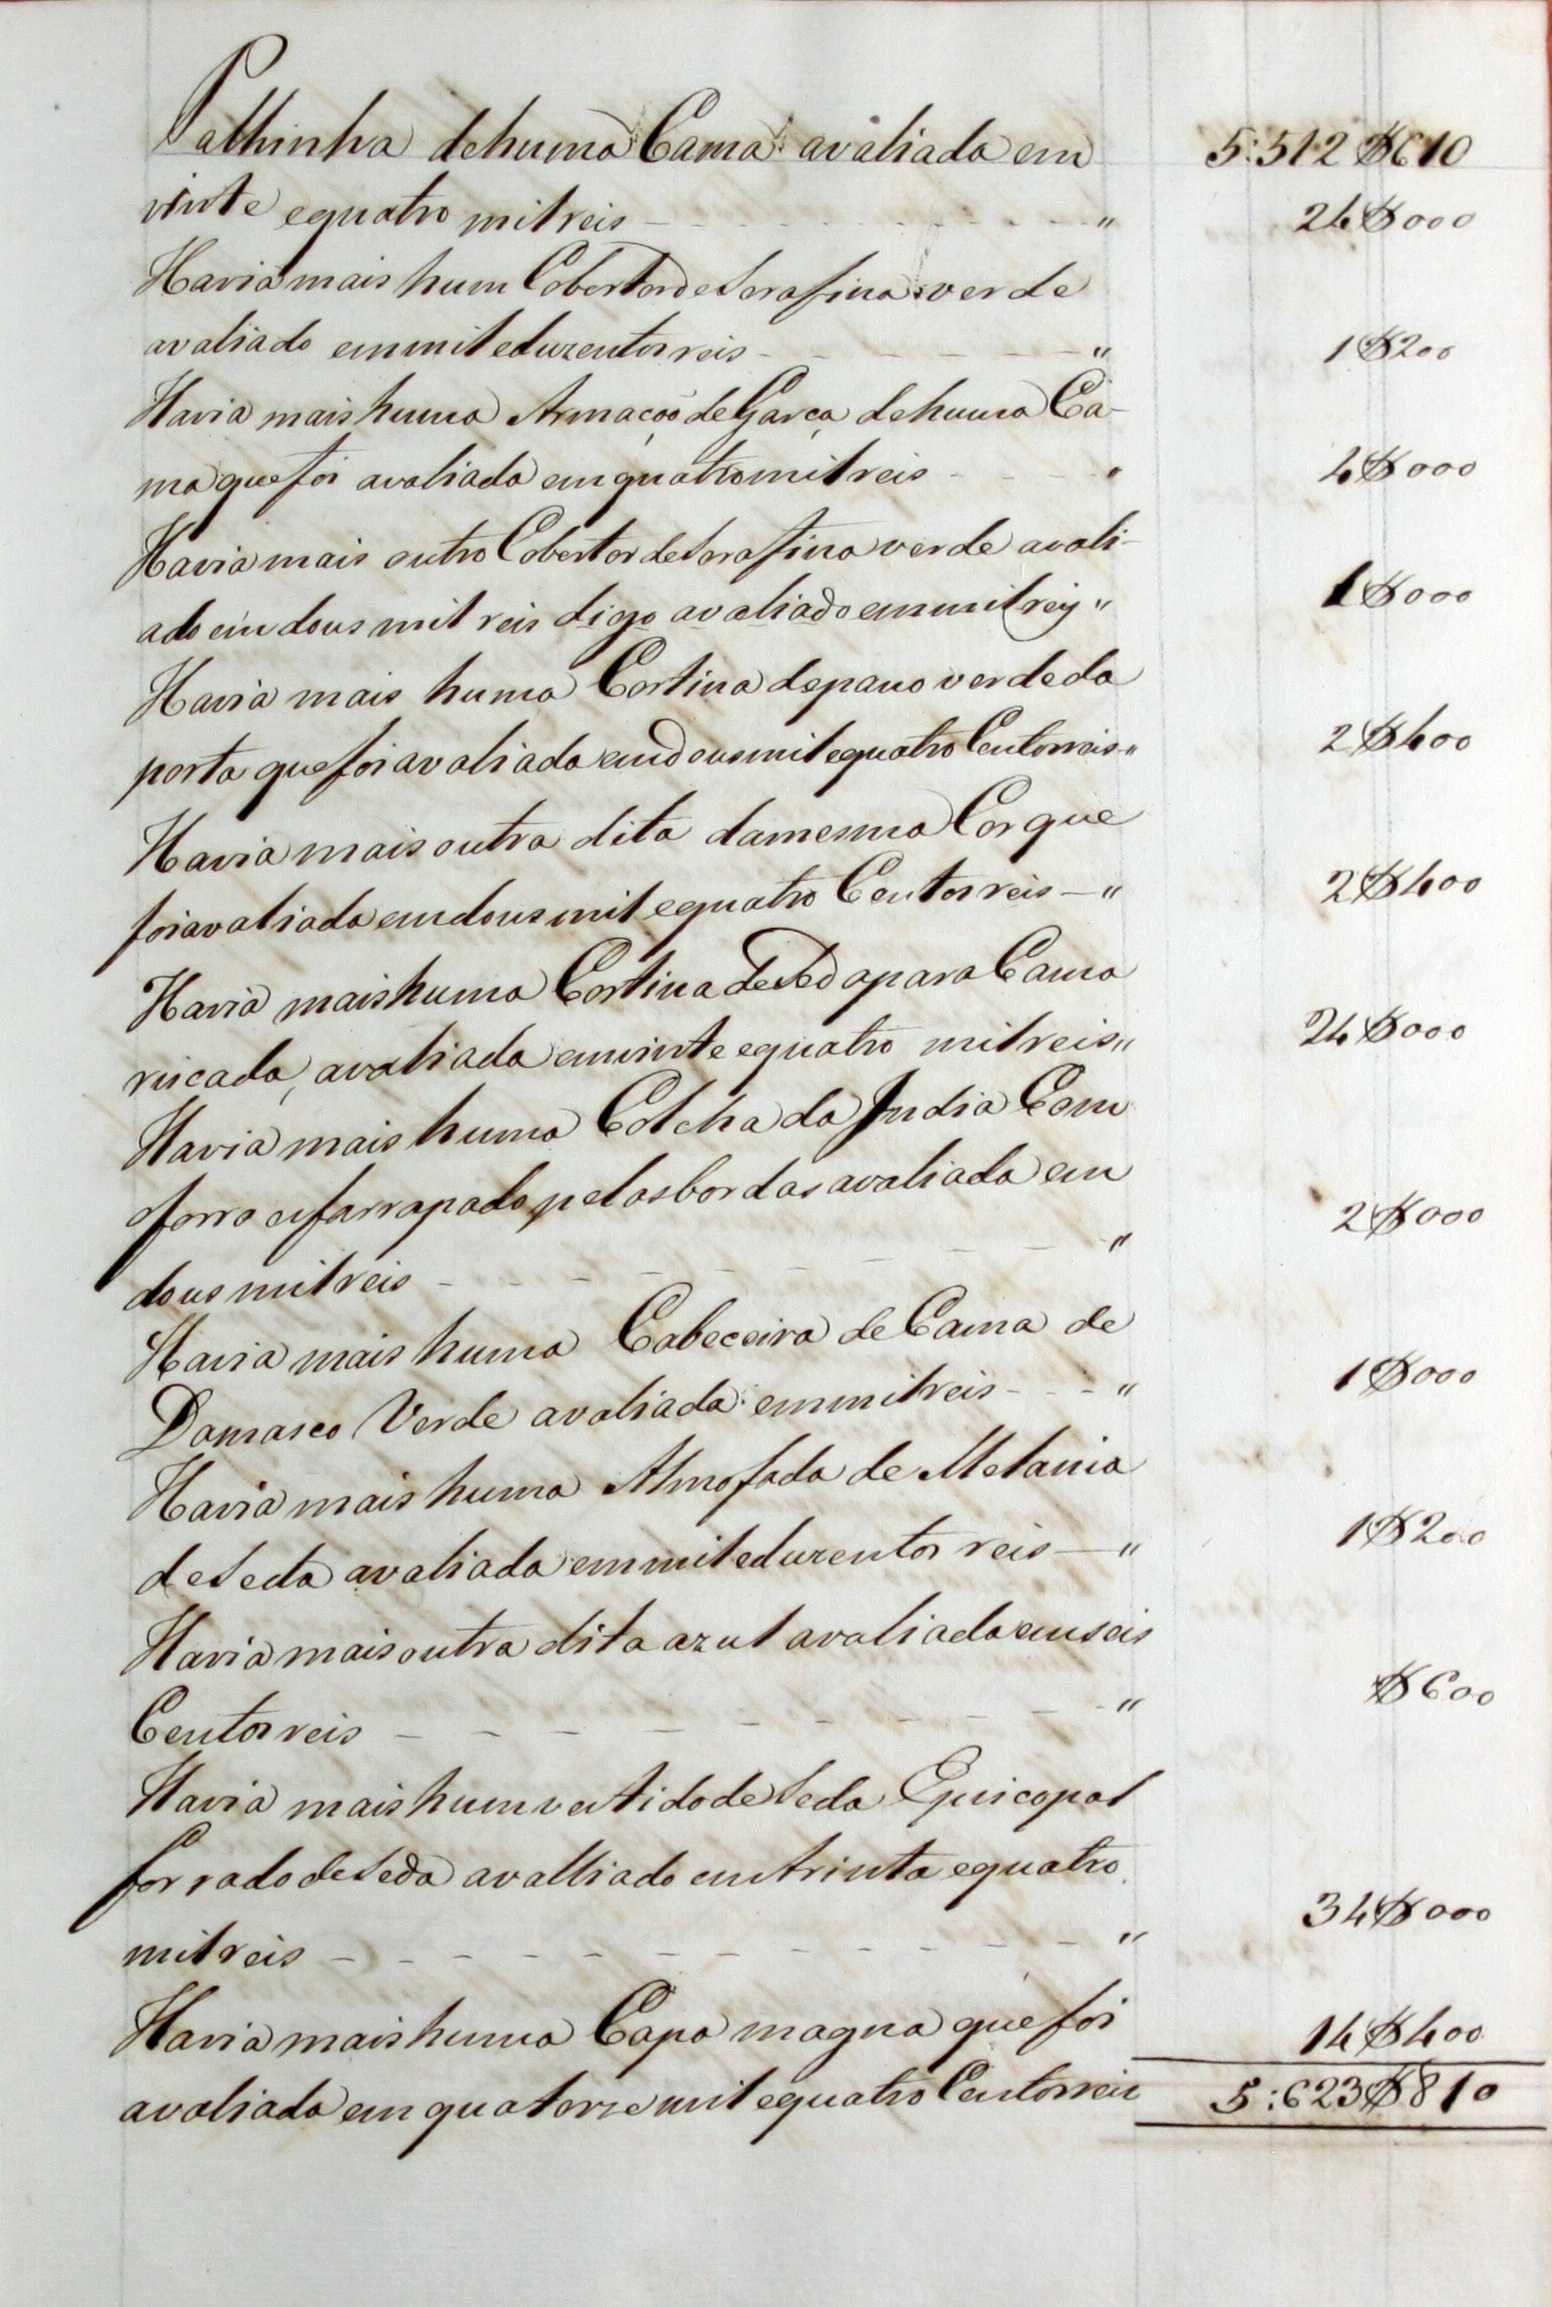 Palhinha de huma Cama avaliada em 5:512$610
vinte e quatro mil reis - - - " 24$000
Havia mais hum Cobertor de Serafina verde
avaliado em mil e duzentos reis - - - " 1$200
Havia mais huma Armação de Garça de huma Ca-
ma que foi avaliada em quatro mil reis - - - " 4$000
Havia mais outro Cobertor de Serafina verde avali-
ado em dous mil reis digo avaliado em mil reis " 1$000
Havia mais huma Cortina de pano verde da
porta que foi avaliada em dous mil e quatro Centos reis " 2$400
Havia mais outra dita da mesma Cor que
foi avaliada em dous mil e quatro Centos reis - " 2$400
Havia mais huma Cortina de Seda para Cama
riscada, avaliada em vinte e quatro mil reis " 24$000
Havia mais huma Colcha da India Com
o forro esfarrapado pelas bordas avaliada em
dous mil reis - - - " 2$000
Havia mais huma Cabeceira de Cama de
Damasco Verde avaliada em mil reis - - - " 1$000
Havia mais huma Almofada de Melania
de Seda avaliada em mil e duzentos reis - " 1$200
Havia mais outra dita azul avaliada em seis
Centos reis - - - " $600
Havia mais hum vestido de Seda Episcopal
forrado de Seda avalliado em trinta e quatro
mil reis - - - " 34$000
Havia mais huma Capa magna que foi
avaliada em quatorze mil e quatro Centos reis 14$400
5:623$810